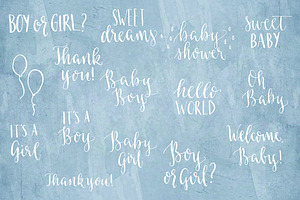 BOY OR GIRL?
SWEET
dreams
baby
shower
Sweet
BABY
Thank
you!
Baby
Boy
hello
WORLD
Oh
Baby
IT'S A
Girl
IT'S A
Boy
Baby
Girl
Boy
or Girl?
Welcome,
Baby!
Thank you!